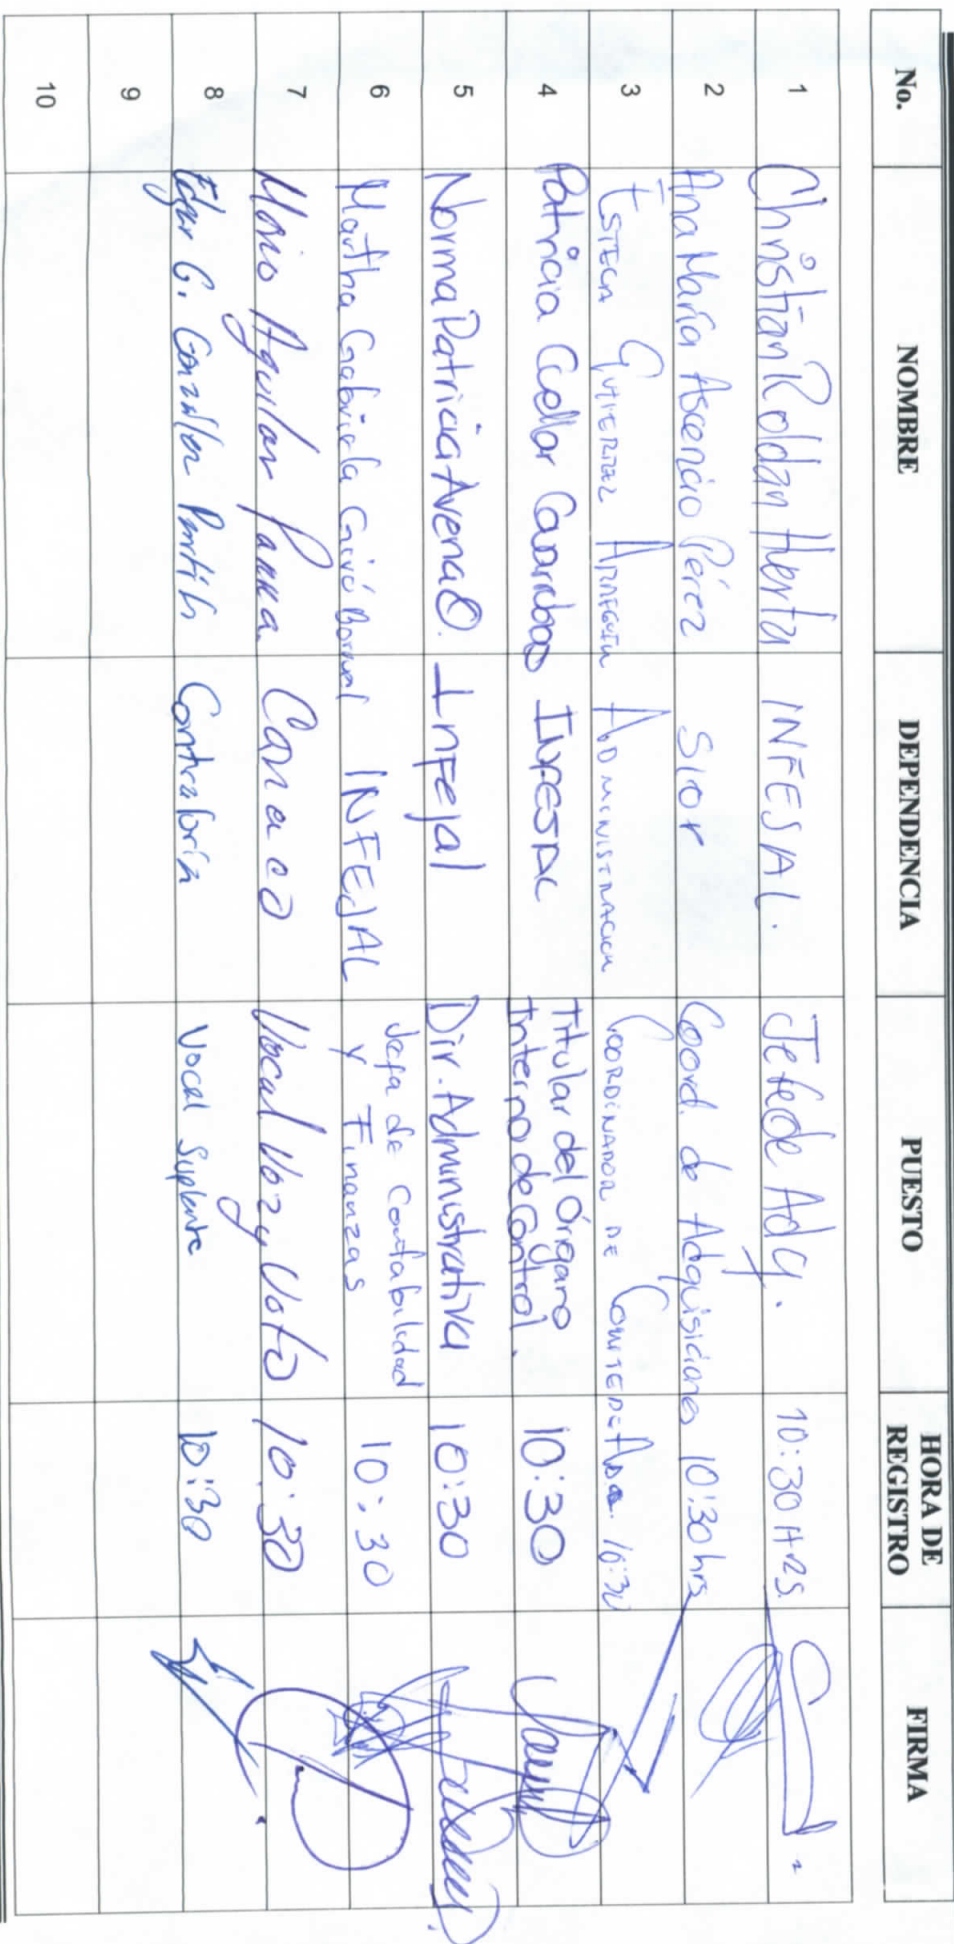 No. NOMBRE DEPENDENCIA PUESTO HORA DE REGISTRO FIRMA
1 Christian Roldan Huerta INFESAL. Jefe de Adq. 10:30 Hrs.
2 Ana María Ascencio Pérez Coord. de Adquisiciones 10:30 hrs
3 Gutierrez Administracion Coordinador de 10:30
4 Patricia Cuellar Titular del Órgano Interno de Control. 10:30
5 Norma Patricia Avena O. Infejal Dir. Administrativa 10:30
6 Martha Gabriela INFEJAL Jefa de Contabilidad y Finanzas 10:30
7 Mario Aguilar Canaco Vocal Voz y Voto 10:30
8 Edgar G. González Contraloría Vocal Suplente 10:30
9
10